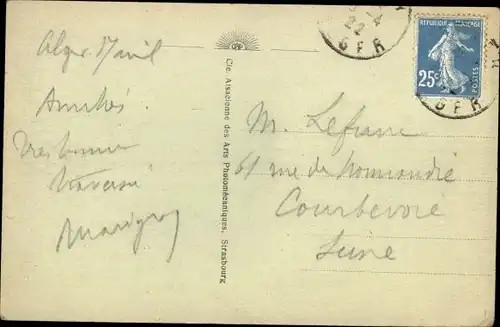 Alger 17 avril
Amitiés.
Très bonne
traversée
Cie. Alsacienne des Arts Photomécaniques, Strasbourg
RÉPUBLIQUE FRANÇAISE
25c
POSTES
M. Lefranc
61 rue de Normandie
Courbevoie
Seine